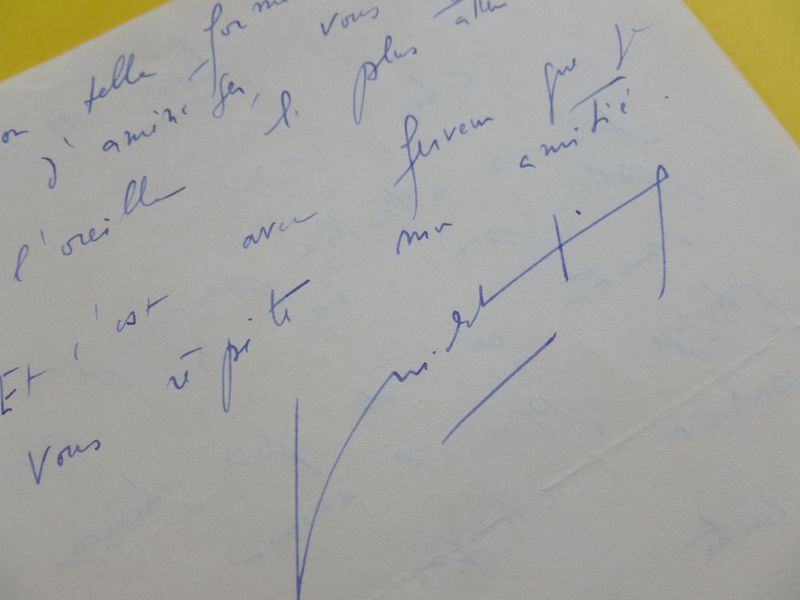 telle forme
d'amitié vous
l'oreille plus
Et c'est avec ferveur que je
vous répète mon amitié.